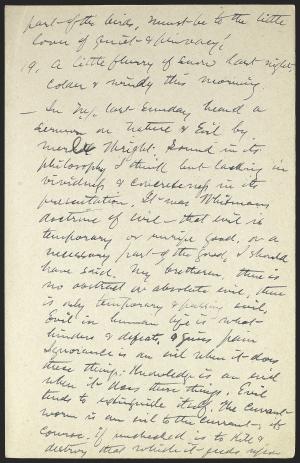 part of the birds, must be to the little
lover of quiet & privacy!
19. A little flurry of snow last night,
Colder & windy this morning.
— In N.Y. last Sunday heard a
sermon on Nature & Evil by
Merle Wright. Sound in its
philosophy I think but lacking in
vividness & concreteness in its
presentation. It was Whitmans
doctrine of evil — that evil is
temporary or unripe good, or a
necessary part of the good, I should
have said. My brethren, there is
no abstract or absolute evil, there
is only temporary & passing evil,
Evil in human life is what
hinders & defeats, & gives pain
Ignorance is an evil when it does
these things. Knowledge is an evil
when it does these things. Evil
tends to extinguish itself. The currant-
worm is an evil to the currant, of
course. If unchecked is to kill &
destroy that which it feeds upon